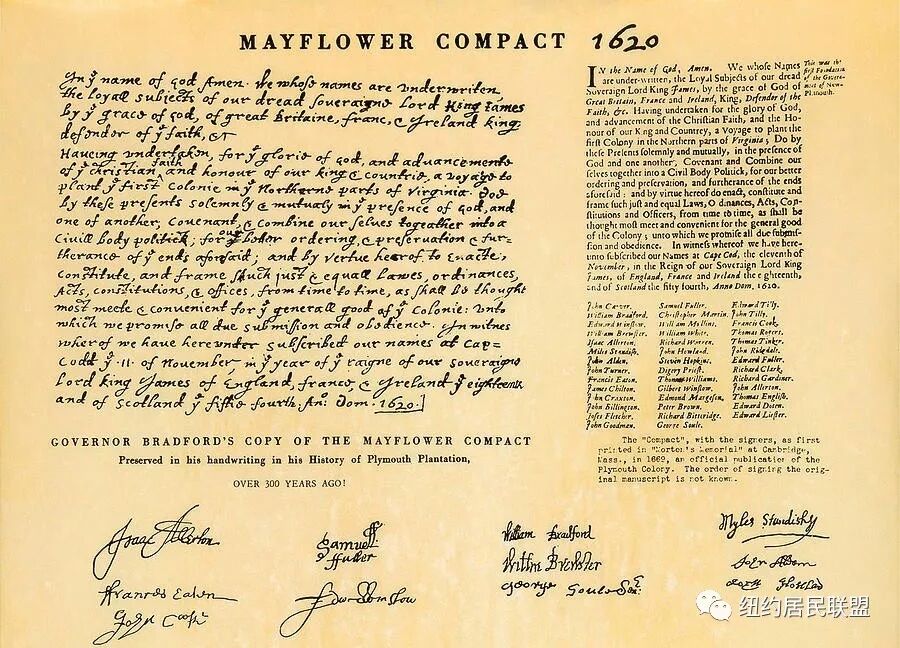 MAYFLOWER COMPACT 1620
In yͤ name of god Amen. We whose names are underwriten,
the loyall subjects of our dread soveraigne Lord King James
by yͤ grace of god, of great Britaine, franc, & Ireland king,
defender of yͤ faith, &c
Haveing undertaken, for yͤ glorie of god, and advancemente
of yͤ christian faith and honour of our king & countrie, a voyage to
plant yͤ first colonie in yͤ Northerne parts of Virginia. Doe
by these presents solemnly & mutualy in yͤ presence of god, and
one of another, covenant, & combine our selves togeather into a
Civill body politick; for our better ordering, & preservation & fur=
therance of yͤ ends aforesaid; and by vertue hearof to enacte,
constitute, and frame such just & equall lawes, ordinances,
Acts, constitutions, & offices, from time to time, as shall be thought
most meete & convenient for yͤ generall good of yͤ Colonie: unto
which we promise all due submission and obedience. In witnes
wherof we have hereunder subscribed our names at Cap=
Codd yͤ .11. of November, in yͤ year of yͤ raigne of our soveraigne
Lord king James of England, france, & Ireland yͤ eighteenth
and of Scotland yͤ fiftie fourth. An: Dom. 1620.
GOVERNOR BRADFORD'S COPY OF THE MAYFLOWER COMPACT
Preserved in his handwriting in his History of Plymouth Plantation,
OVER 300 YEARS AGO!
IN the Name of God, Amen. We whose Names
are under-written, the Loyal Subjects of our dread
Soveraign Lord King James, by the grace of God of
Great Britain, France and Ireland, King, Defender of the
Faith, &c. Having undertaken for the glory of God,
and advancement of the Christian Faith, and the Ho-
nour of our King and Countrey, a Voyage to plant the
first Colony in the Northern parts of Virginia; Do by
these Presents solemnly and mutually, in the presence of
God and one another, Covenant and Combine our
selves together into a Civil Body Politick, for our better
ordering and preservation, and furtherance of the ends
aforesaid: and by virtue hereof do enact, constitute and
frame such just and equal Laws, Ordinances, Acts, Con-
stitutions and Officers, from time to time, as shall be
thought most meet and convenient for the general good
of the Colony; unto which we promise all due submis-
sion and obedience. In witness whereof we have here-
unto subscribed our Names at Cape Cod, the eleventh of
November, in the Reign of our Soveraign Lord King
James, of England, France and Ireland the eighteenth,
and of Scotland the fifty fourth, Anno Dom. 1620.
This was the
first Foundation
of the Govern-
ment of New-
Plimouth.
John Carver. Samuel Fuller. Edward Tilly.
William Bradford. Christopher Martin. John Tilly.
Edward Winslow. William Mullins. Francis Cook.
William Brewster. William White. Thomas Rogers.
Isaac Allerton. Richard Warren. Thomas Tinker.
Miles Standish. John Howland. John Ridgdale.
John Alden. Steven Hopkins. Edward Fuller.
John Turner. Digery Priest. Richard Clark.
Francis Eaton. Thomas Williams. Richard Gardiner.
James Chilton. Gilbert Winslow. John Allerton.
John Craxton. Edmond Margeson. Thomas English.
John Billington. Peter Brown. Edward Doten.
Joses Fletcher. Richard Bitteridge. Edward Liester.
John Goodman. George Soule.
The "Compact", with the signers, as first
printed in "Morton's Memorial" at Cambridge,
Mass., in 1669, an official publication of the
Plymouth Colony. The order of signing the orig-
inal manuscript is not known.
Isaac Allerton
Samuell
ffuller
William Bradford
Myles Standish
Willm Brewster
John Alden
Frances Eaten
Edw Winslow
George Soule
John Cooke
纽约居民联盟